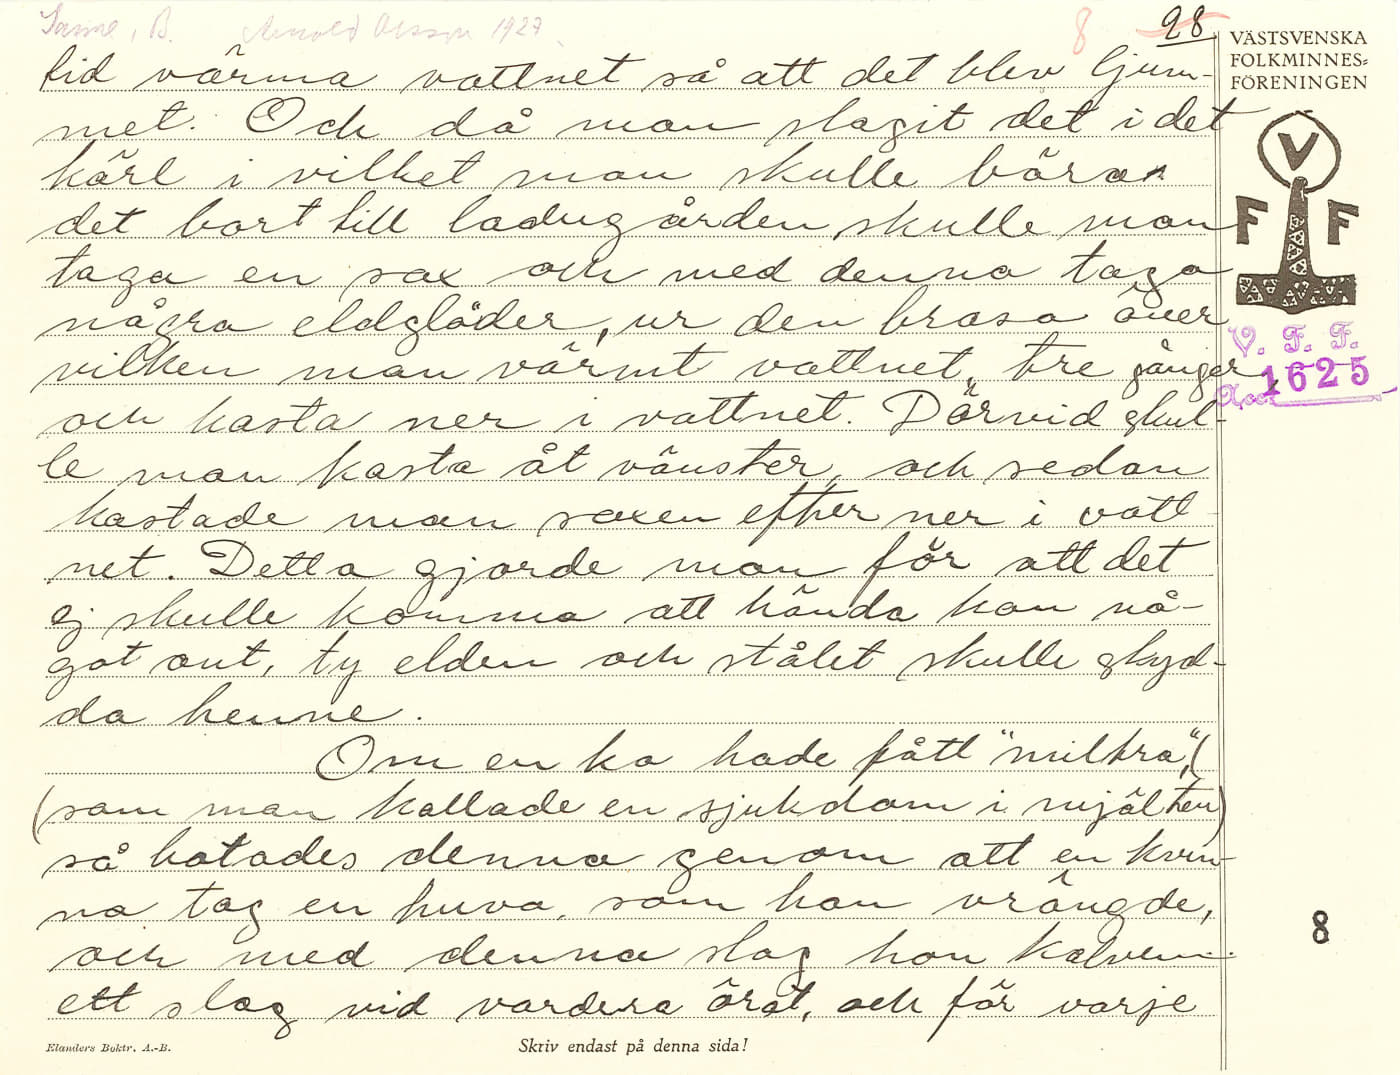 Arnold Olsson 1927.
8 28.
VÄSTSVENSKA
FOLKMINNES=
FÖRENINGEN
V
F F
V. F. F.
Acc. 1625
tid värma vattnet så att det blev ljum-
met. Och då man slagit det i det
kärl i vilket man skulle bära
det bort till ladugården, skulle man
taga en sax och med denna taga
några eldglöder, ur den brasa över
vilken man värmt vattnet, tre gånger,
och kasta ner i vattnet. Därvid skul-
le man kasta åt vänster, och sedan
kastade man saxen efter ner i vatt-
net. Detta gjorde man för att det
ej skulle komma att hända kon nå-
got ont, ty elden och stålet skulle skyd-
da henne.
Om en ko hade fått "miltra", (
(som man kallade en sjukdom i mjälten)
så botades denna genom att en kvin-
na tog en huva, som hon vrängde,
och med denna slog hon kalven
ett slag vid vardera örat, och för varje
8
Elanders Boktr. A.-B.
Skriv endast på denna sida!